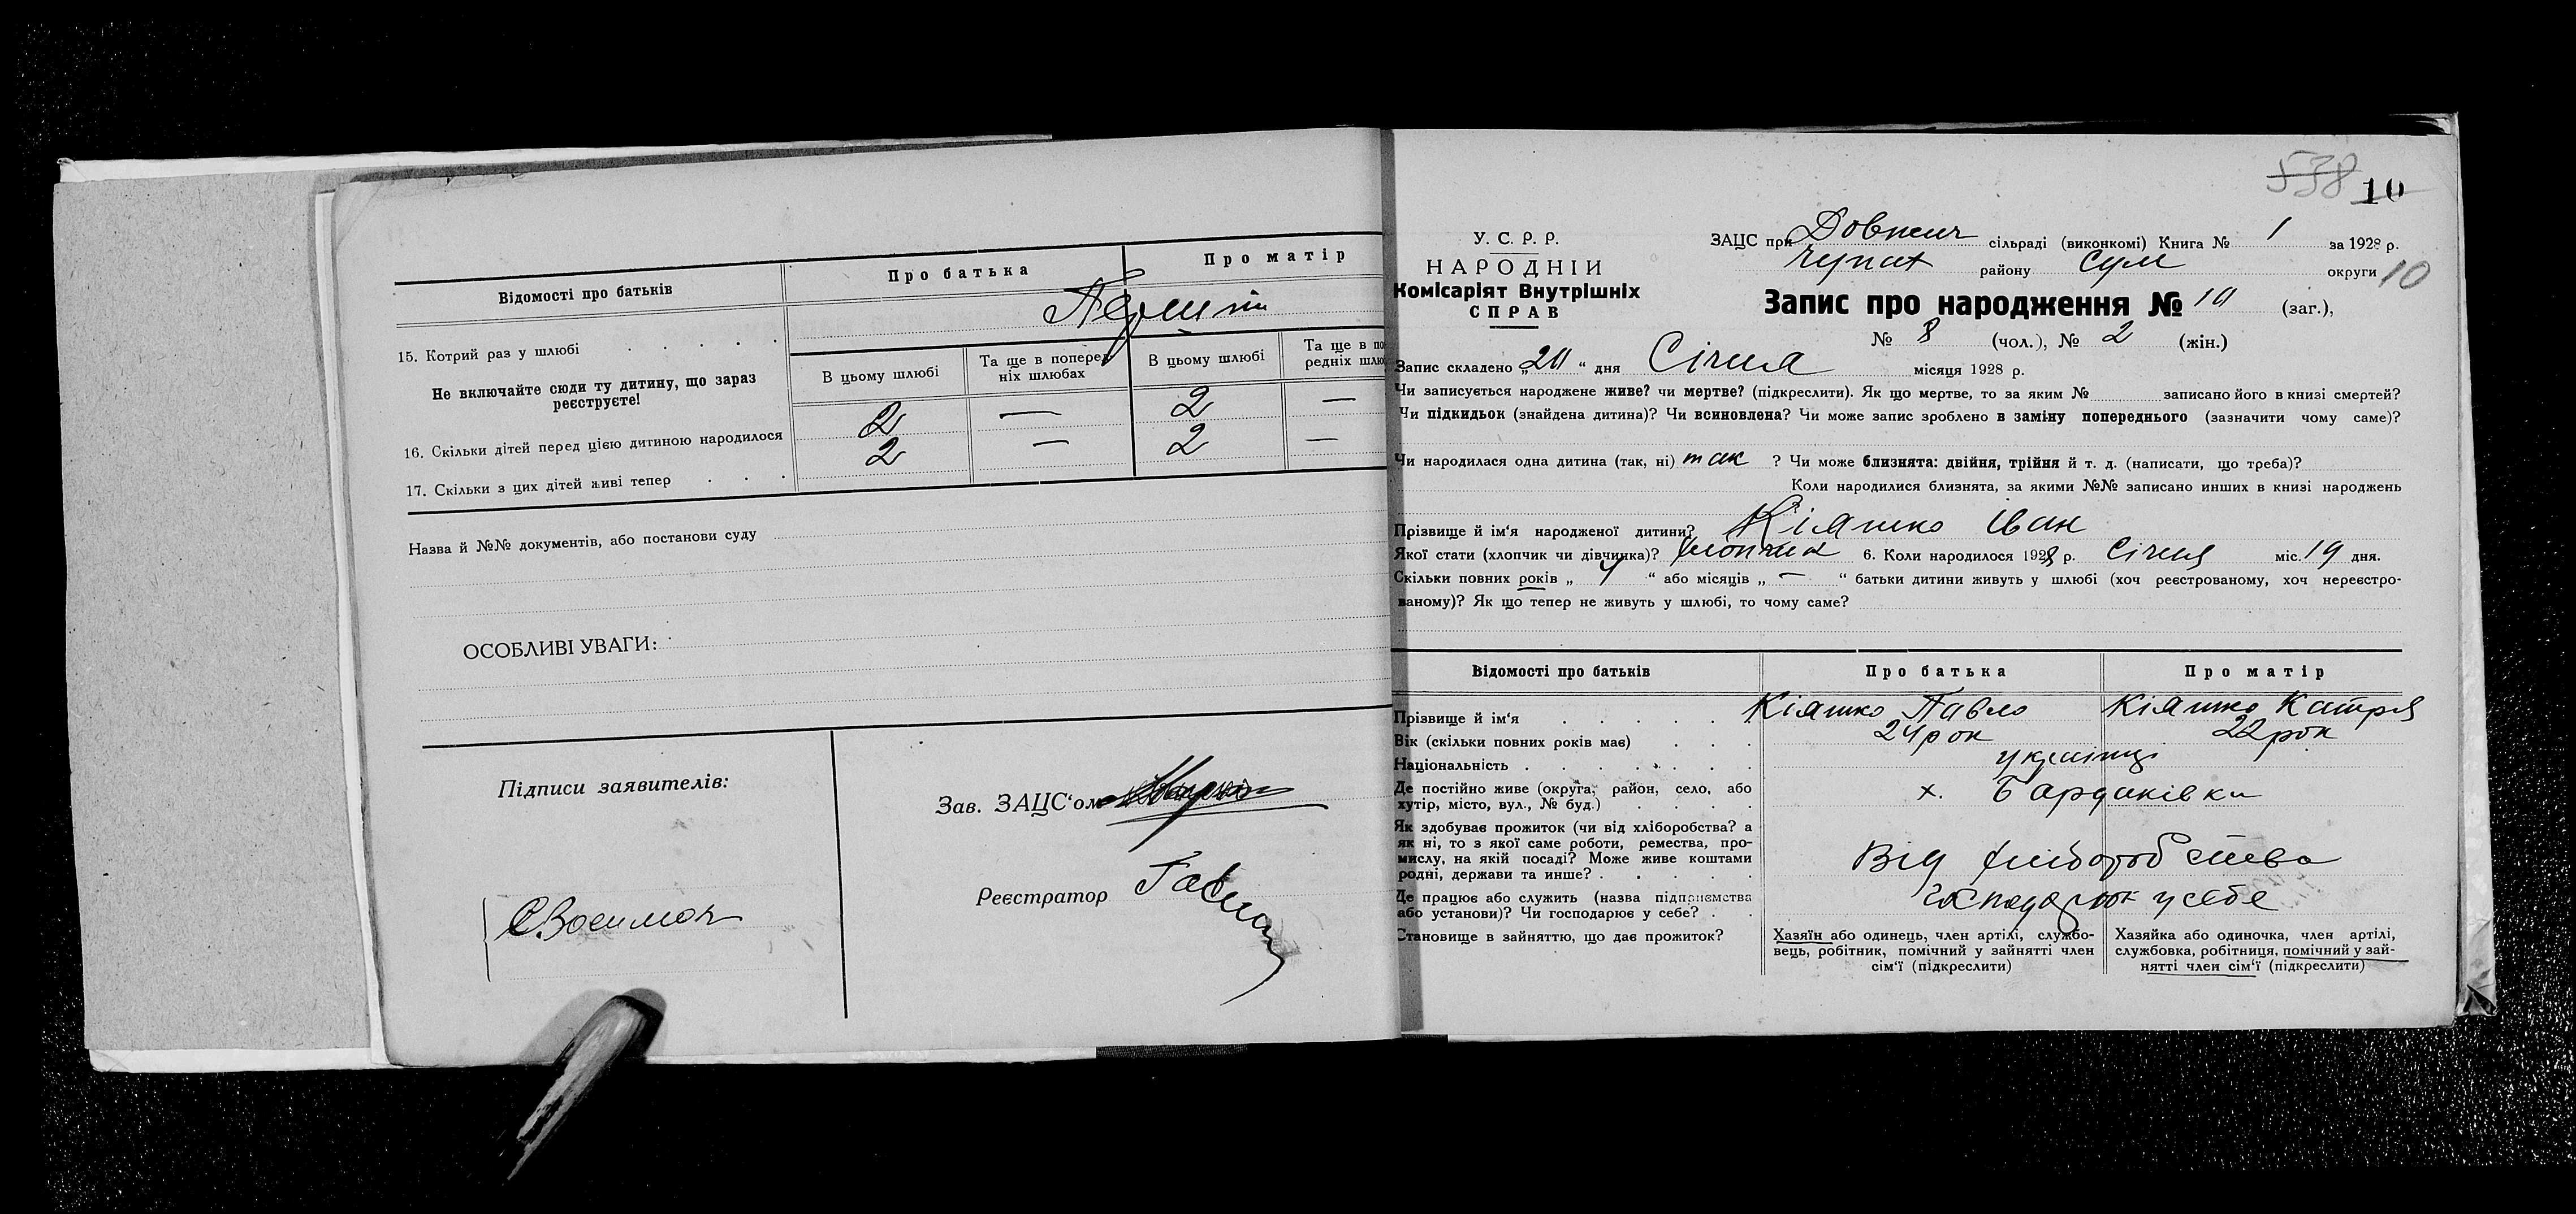 Відомості про батьків
Про батька
Про матір
15. Котрий раз у шлюбі . . . . .
Перший
Не включайте сюди ту дитину, що зараз
реєструєте!
В цьому шлюбі
Та ще в поперед
ніх шлюбах
В цьому шлюбі
Та ще в по
редніх шлю
16. Скільки дітей перед цією дитиною народилося 2 — 2 —
17. Скільки з цих дітей живі тепер . . . 2 — 2 —
Назва й №№ документів, або постанови суду
ОСОБЛИВІ УВАГИ:
Підписи заявителів:
Зав. ЗАЦС'ом
Реєстратор
538 10
У. С. Р. Р.
НАРОДНІЙ
Комісаріят Внутрішніх
СПРАВ
ЗАЦС при Довжич сільраді (виконкомі) Книга № 1 за 1928 р.
Чупах району Сум округи 10
Запис про народження № 10 (заг.),
№ 8 (чол.), № 2 (жін.)
Запис складено „20“ дня Січня місяця 1928 р.
Чи записується народжене живе? чи мертве? (підкреслити). Як що мертве, то за яким № записано його в книзі смертей?
Чи підкидьок (знайдена дитина)? Чи всиновлена? Чи може запис зроблено в заміну попереднього (зазначити чому саме)?
Чи народилася одна дитина (так, ні) так ? Чи може близнята: двійня, трійня й т. д. (написати, що треба)?
Коли народилися близнята, за якими №№ записано инших в книзі народжень
Прізвище й ім'я народженої дитини? Кіяшко Іван
Якої стати (хлопчик чи дівчинка)? хлопчик 6. Коли народилося 1928 р. Січня міс. 19 дня.
Скільки повних років „ 4 “ або місяців „ — “ батьки дитини живуть у шлюбі (хоч реєстрованому, хоч нереєстро-
ваному)? Як що тепер не живуть у шлюбі, то чому саме?
Відомості про батьків
Про батька
Про матір
Прізвище й ім'я . . . . . Кіяшко Павло Кіяшко Катря
Вік (скільки повних років має) . . . 24 рок 22 рок
Національність . . . . . . . українці
Де постійно живе (округа, район, село, або
хутір, місто, вул., № буд.) . . . .
х. Бардаківки
Як здобуває прожиток (чи від хліборобства? а
як ні, то з якої саме роботи, ремества, про-
мислу, на якій посаді? Може живе коштами
родні, держави та инше? . . . . .
Від хліборобства
Де працює або служить (назва підприємства
або установи)? Чи господарює у себе? . .
господарюють у себе
Становище в зайняттю, що дає прожиток?
Хазяїн або одинець, член артілі, службо-
вець, робітник, помічний у зайнятті член
сім'ї (підкреслити)
Хазяйка або одиночка, член артілі,
службовка, робітниця, помічний у зай-
нятті член сім'ї (підкреслити)